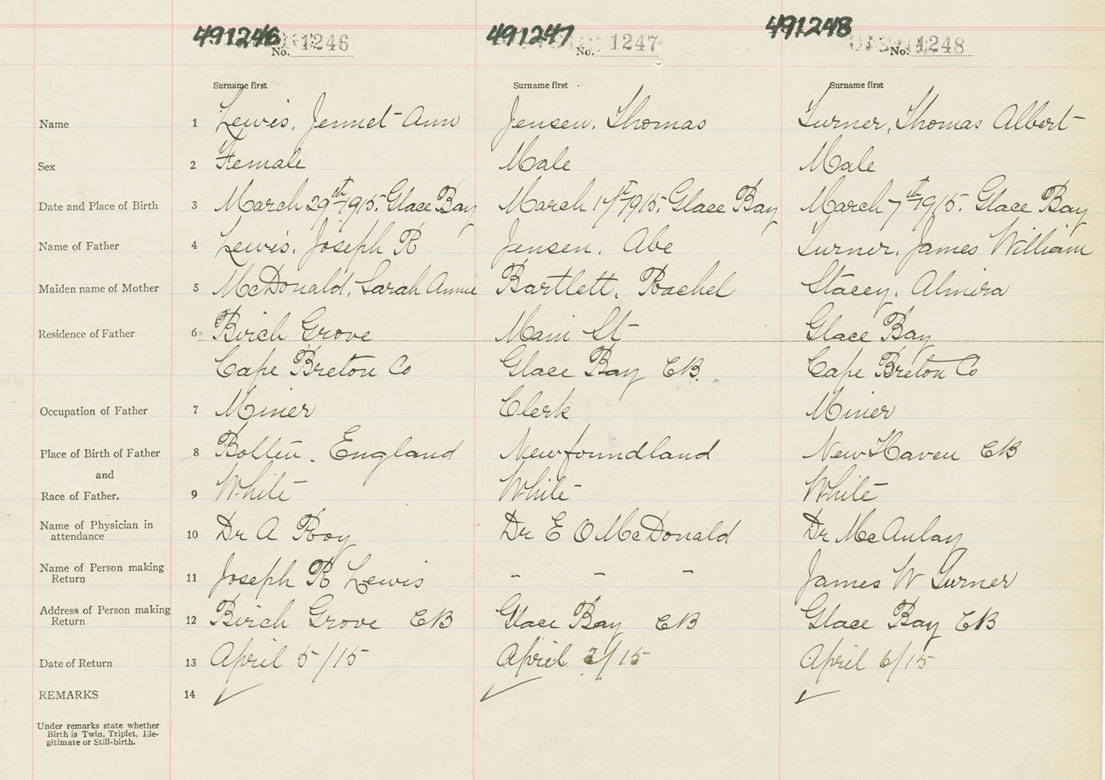 491246 491247 491248
No. 1246 No. 1247 No. 1248
Surname first Surname first Surname first
Name 1 Lewis, Jennet Ann Jensen, Thomas Turner, Thomas Albert
Sex 2 Female Male Male
Date and Place of Birth 3 March 29th 1915. Glace Bay March 1st 1915. Glace Bay March 7th 1915. Glace Bay
Name of Father 4 Lewis, Joseph R Jensen, Abe Turner, James William
Maiden name of Mother 5 McDonald, Sarah Annie Bartlett, Rachel Stacey, Almira
Residence of Father 6 Birch Grove Main St Glace Bay
Cape Breton Co Glace Bay CB. Cape Breton Co
Occupation of Father 7 Miner Clerk Miner
Place of Birth of Father 8 England Newfoundland New Haven CB
and
Race of Father. 9 White White White
Name of Physician in
attendance 10 Dr A Roy Dr E O McDonald Dr McAulay
Name of Person making
Return 11 Joseph R Lewis - - - James W Turner
Address of Person making
Return 12 Birch Grove CB Glace Bay CB Glace Bay CB
Date of Return 13 April 5/15 April /15 April 6/15
REMARKS 14
Under remarks state whether
Birth is Twin, Triplet, Ille-
gitimate or Still-birth.